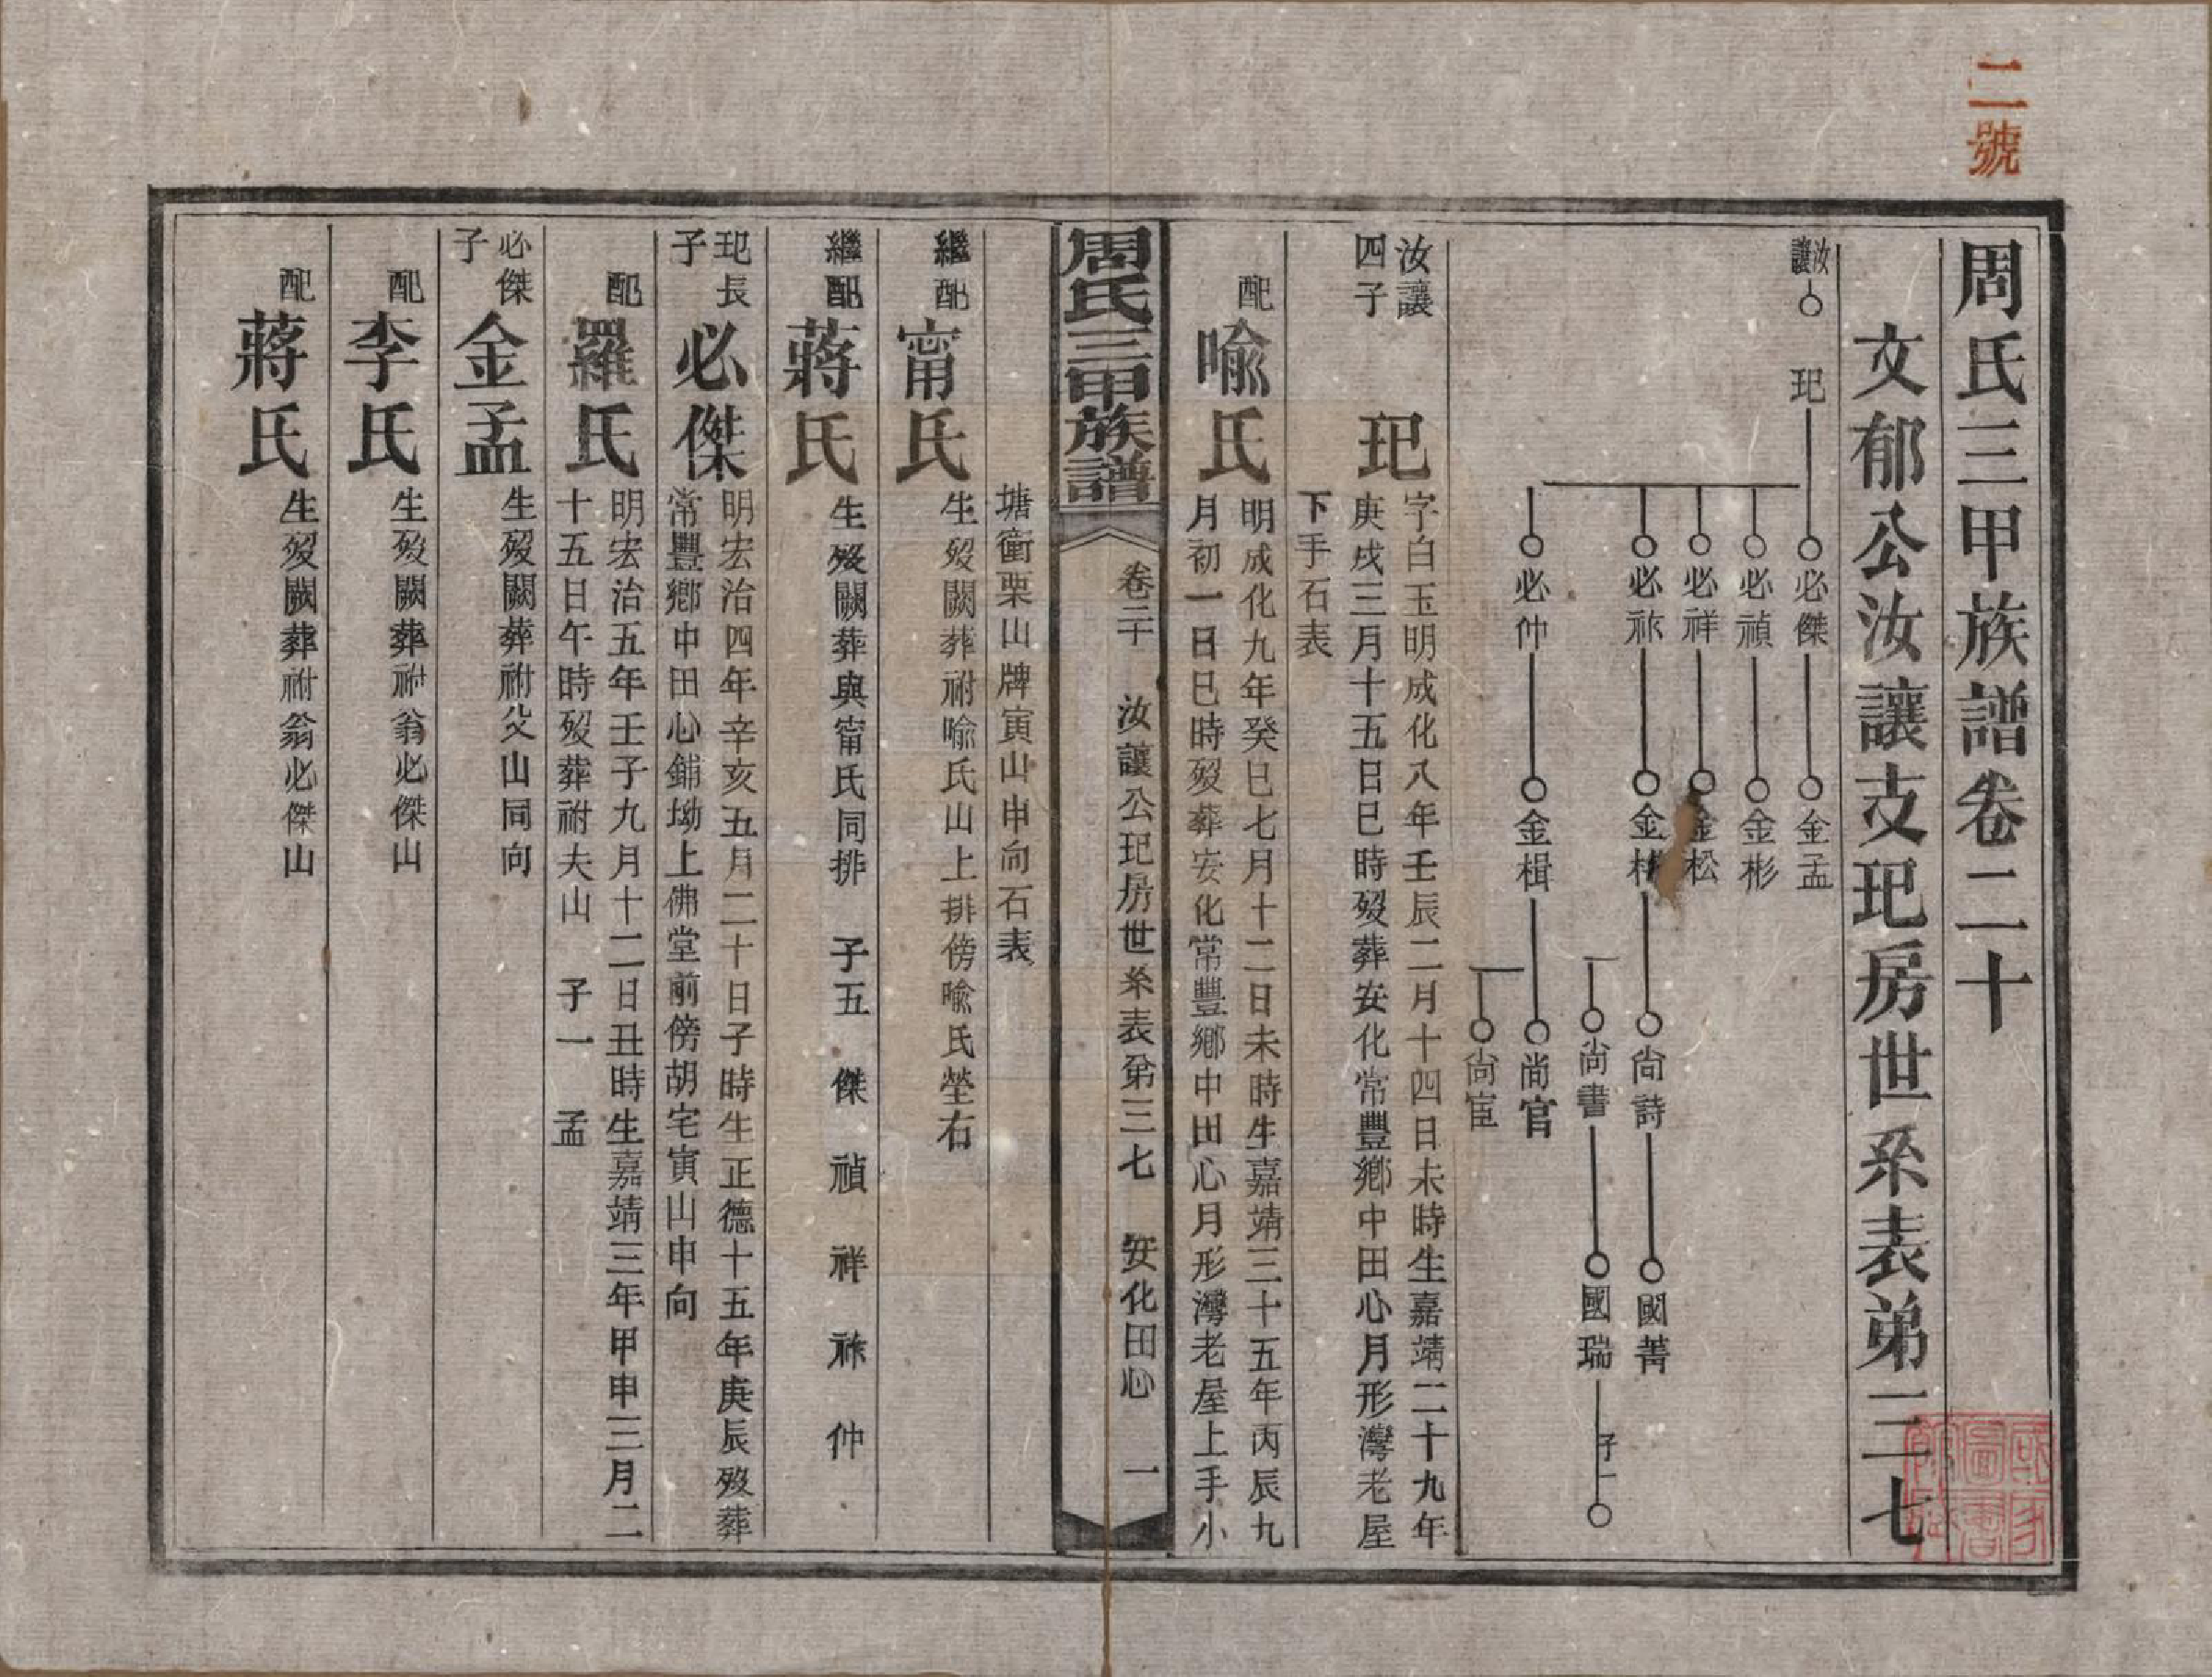 二號
周氏三甲族譜卷二十
文郁公汝讓支玘房世系表弟三七
汝讓 玘
必傑 金孟
必禎 金彬
必祥 金松
必祚 尙詩 國菁
尙書 國瑞 子一
必仲 金楫 尙官
尙宦
汝讓四子 玘 字白玉明成化八年壬辰二月十四日未時生嘉靖二十九年
庚戌三月十五日巳時歿葬安化常豐鄉中田心月形灣老屋
下手石表
配 喩氏 明成化九年癸巳七月十二日未時生嘉靖三十五年丙辰九
月初一日巳時歿葬安化常豐鄉中田心月形灣老屋上手小
周氏三甲族譜 卷二十 汝讓公玘房世系表弟三七 安化田心 一
塘衝栗山牌寅山申向石表
繼配 甯氏 生歿闕葬祔喩氏山上排傍喩氏塋右
繼配 蔣氏 生歿闕葬與甯氏同排 子五 傑 禎 祥 祚 仲
玘長子 必傑 明宏治四年辛亥五月二十日子時生正德十五年庚辰歿葬
常豐鄉中田心鋪坳上佛堂前傍胡宅寅山申向
配 羅氏 明宏治五年壬子九月十二日丑時生嘉靖三年甲申三月二
十五日午時歿葬祔夫山 子一 孟
必傑子 金孟 生歿闕葬祔父山同向
配 李氏 生歿闕葬祔翁必傑山
配 蔣氏 生歿闕葬祔翁必傑山